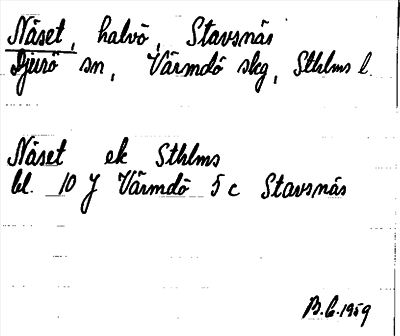 Näset, halvö, Stavsnäs
Djurö sn, Värmdö skg, Sthlms l.
Näset ek Sthlms
bl. 10 J Värmdö 5 c Stavsnäs
B.G. 1959